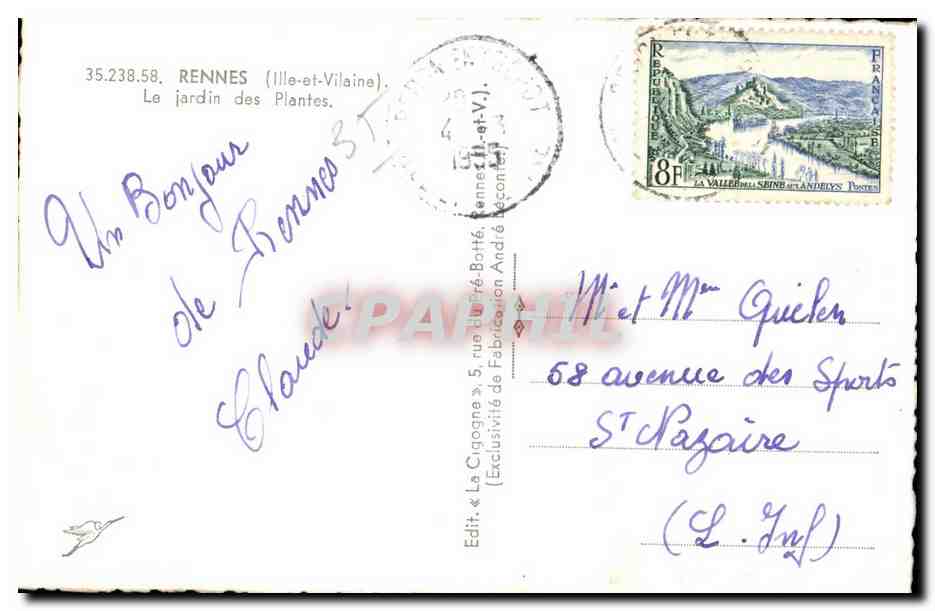 35.238.58. RENNES (Ille-et-Vilaine).
Le jardin des Plantes.
Un Bonjour
de Rennes
Claude!
Edit. « La Cigogne », 5, rue du Pré-Botté, Rennes (I.-et-V.).
(Exclusivité de Fabrication André Leconte)
CPAPHIL
REPUBLIQUE FRANÇAISE
8F
LA VALLEE DE LA SEINE AUX ANDELYS POSTES
Mr et Mme Quélen
58 avenue des Sports
St Nazaire
(L. Inf)